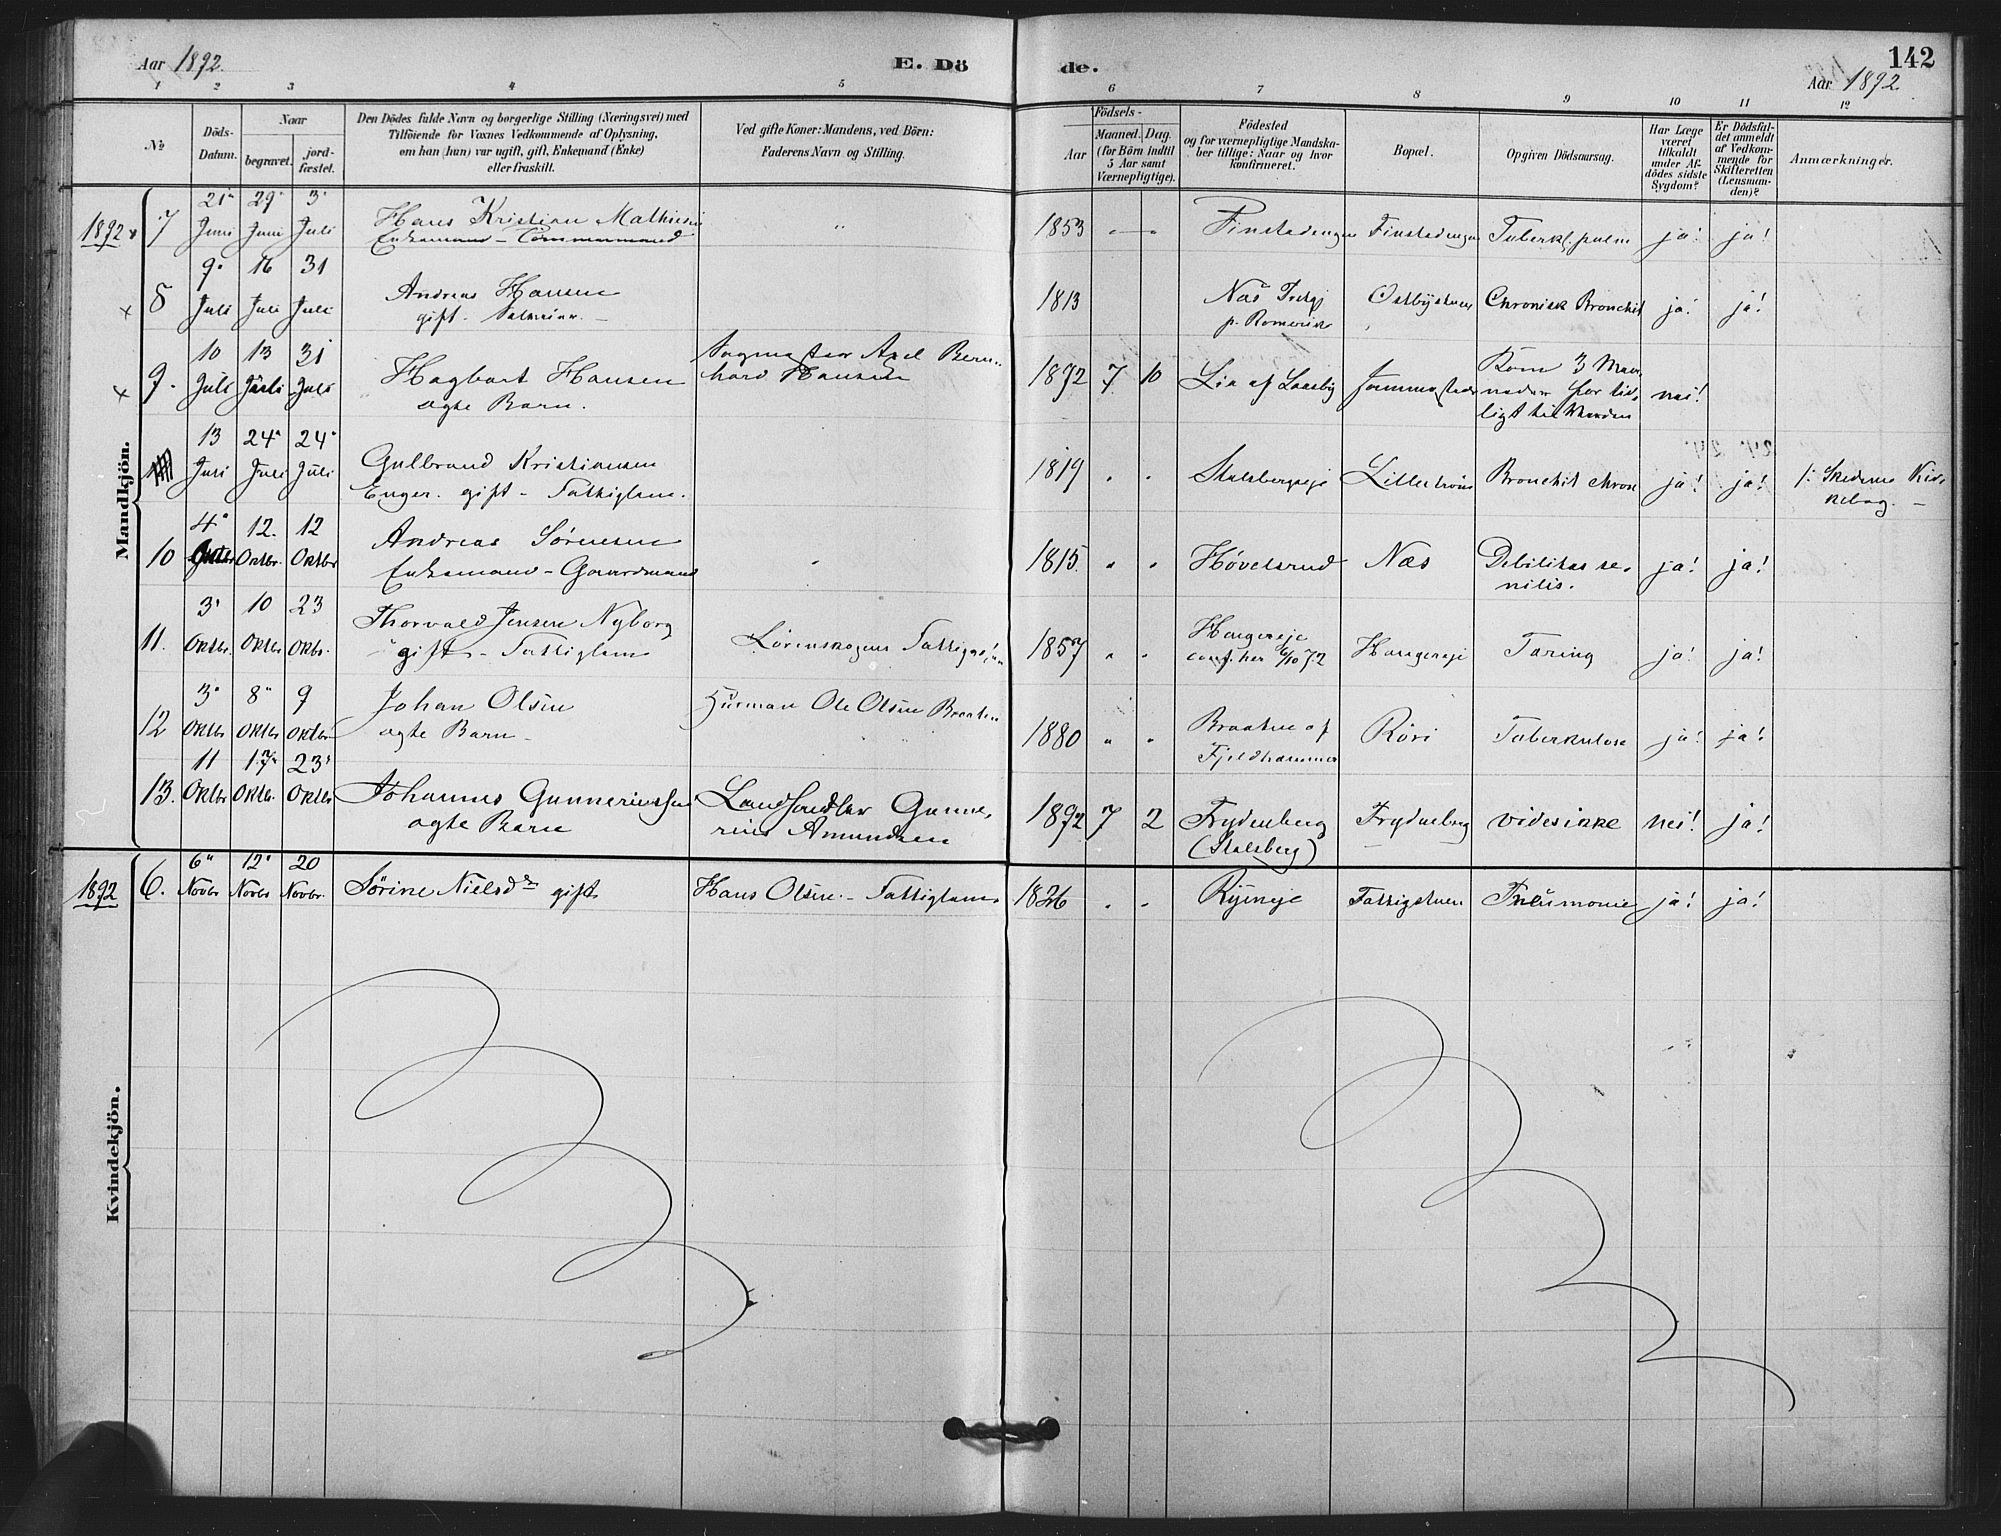 Aar 1892.
E. Dö
de.
142
Aar 1892
1 2 3 4 5 6 7 8 9 10 11 12
№
Döds-
Datum.
Naar
begravet.
jord-
fæstet.
Den Dödes fulde Navn og borgerlige Stilling (Næringsvei) med
Tilföiende for Voxnes Vedkommende af Oplysning,
om han (hun) var ugift, gift, Enkemand (Enke)
eller fraskilt.
Ved gifte Koner: Mandens, ved Börn:
Faderens Navn og Stilling.
Födsels-
Aar
Maaned. Dag.
(for Börn indtil
5 Aar samt
Værnepligtige).
Födested
og for værnepligtige Mandska-
ber tillige: Naar og hvor
konfirmeret.
Bopæl.
Opgiven Dödsaarsag.
Har Læge
været
tilkaldt
under Af-
dödes sidste
Sygdom?
Er Dödsfal-
det anmeldt
af Vedkom-
mende for
Skifteretten
(Lensman-
den)?
Anmærkninger.
Mandkjön.
21 29 3
1892 7 Juni Juni Juli Hans Kristian Mathisen 1853 Finstadengen Finstadengen Tuberkl. pulm ja! ja!
Enkemand
9 16 31
8 Juli Juli Juli Andreas Hansen 1813 Næs Prstgj Chronisk Bronchit ja! ja!
gift p. Romerike
10 13 31
9. Juli Juli Juli Hagbart Hansen Axel Bern-
hard Hansen 1892 7 10 Lia af Kom 3 Maa-
neder for tid- nei!
ægte Barn. ligt til Verden
13 24 24
Juli Juli Juli Gulbrand Kristiansen 1819 Stalsbergeje Lillestrøm Bronchit chron ja! ja!
Enger. gift - Fattiglem.
4 12. 12
10 Oktbr Oktbr. Oktbr Andreas Sørensen 1815 Høvelsrud Næs Debilitas se-
nilis. ja! ja!
Enkemand - Gaardmand
3 10 23
11. Oktbr. Oktbr Oktbr. Thorvald Jensen Nyborg 1857 Haugereje Haugereje Tæring ja! ja!
gift - Fattiglem Lørenskogens conf. her 6/10 72
3 8 9
12 Oktbr Oktbr Oktbr Johan Olsen Husmand Ole Olsen Braaten 1880 Braaten af
Fjeldhammer Tuberkulose ja! ja!
ægte Barn
11 17 23
13. Oktbr Oktb. Oktbr Johannes Gunneriussen Landhandler Gunne-
rius Amundsen 1892 7 2 Frydenberg
(Stalsberg) Frydenberg vides ikke nei! ja!
ægte Barn
Kvindekjön.
6 12 20
1892 6. Novbr Novbr Novbr. Sørine Nielsdr gift Hans Olsen - Fattiglem 1826 Fattigstuen Pneumonie ja! ja!